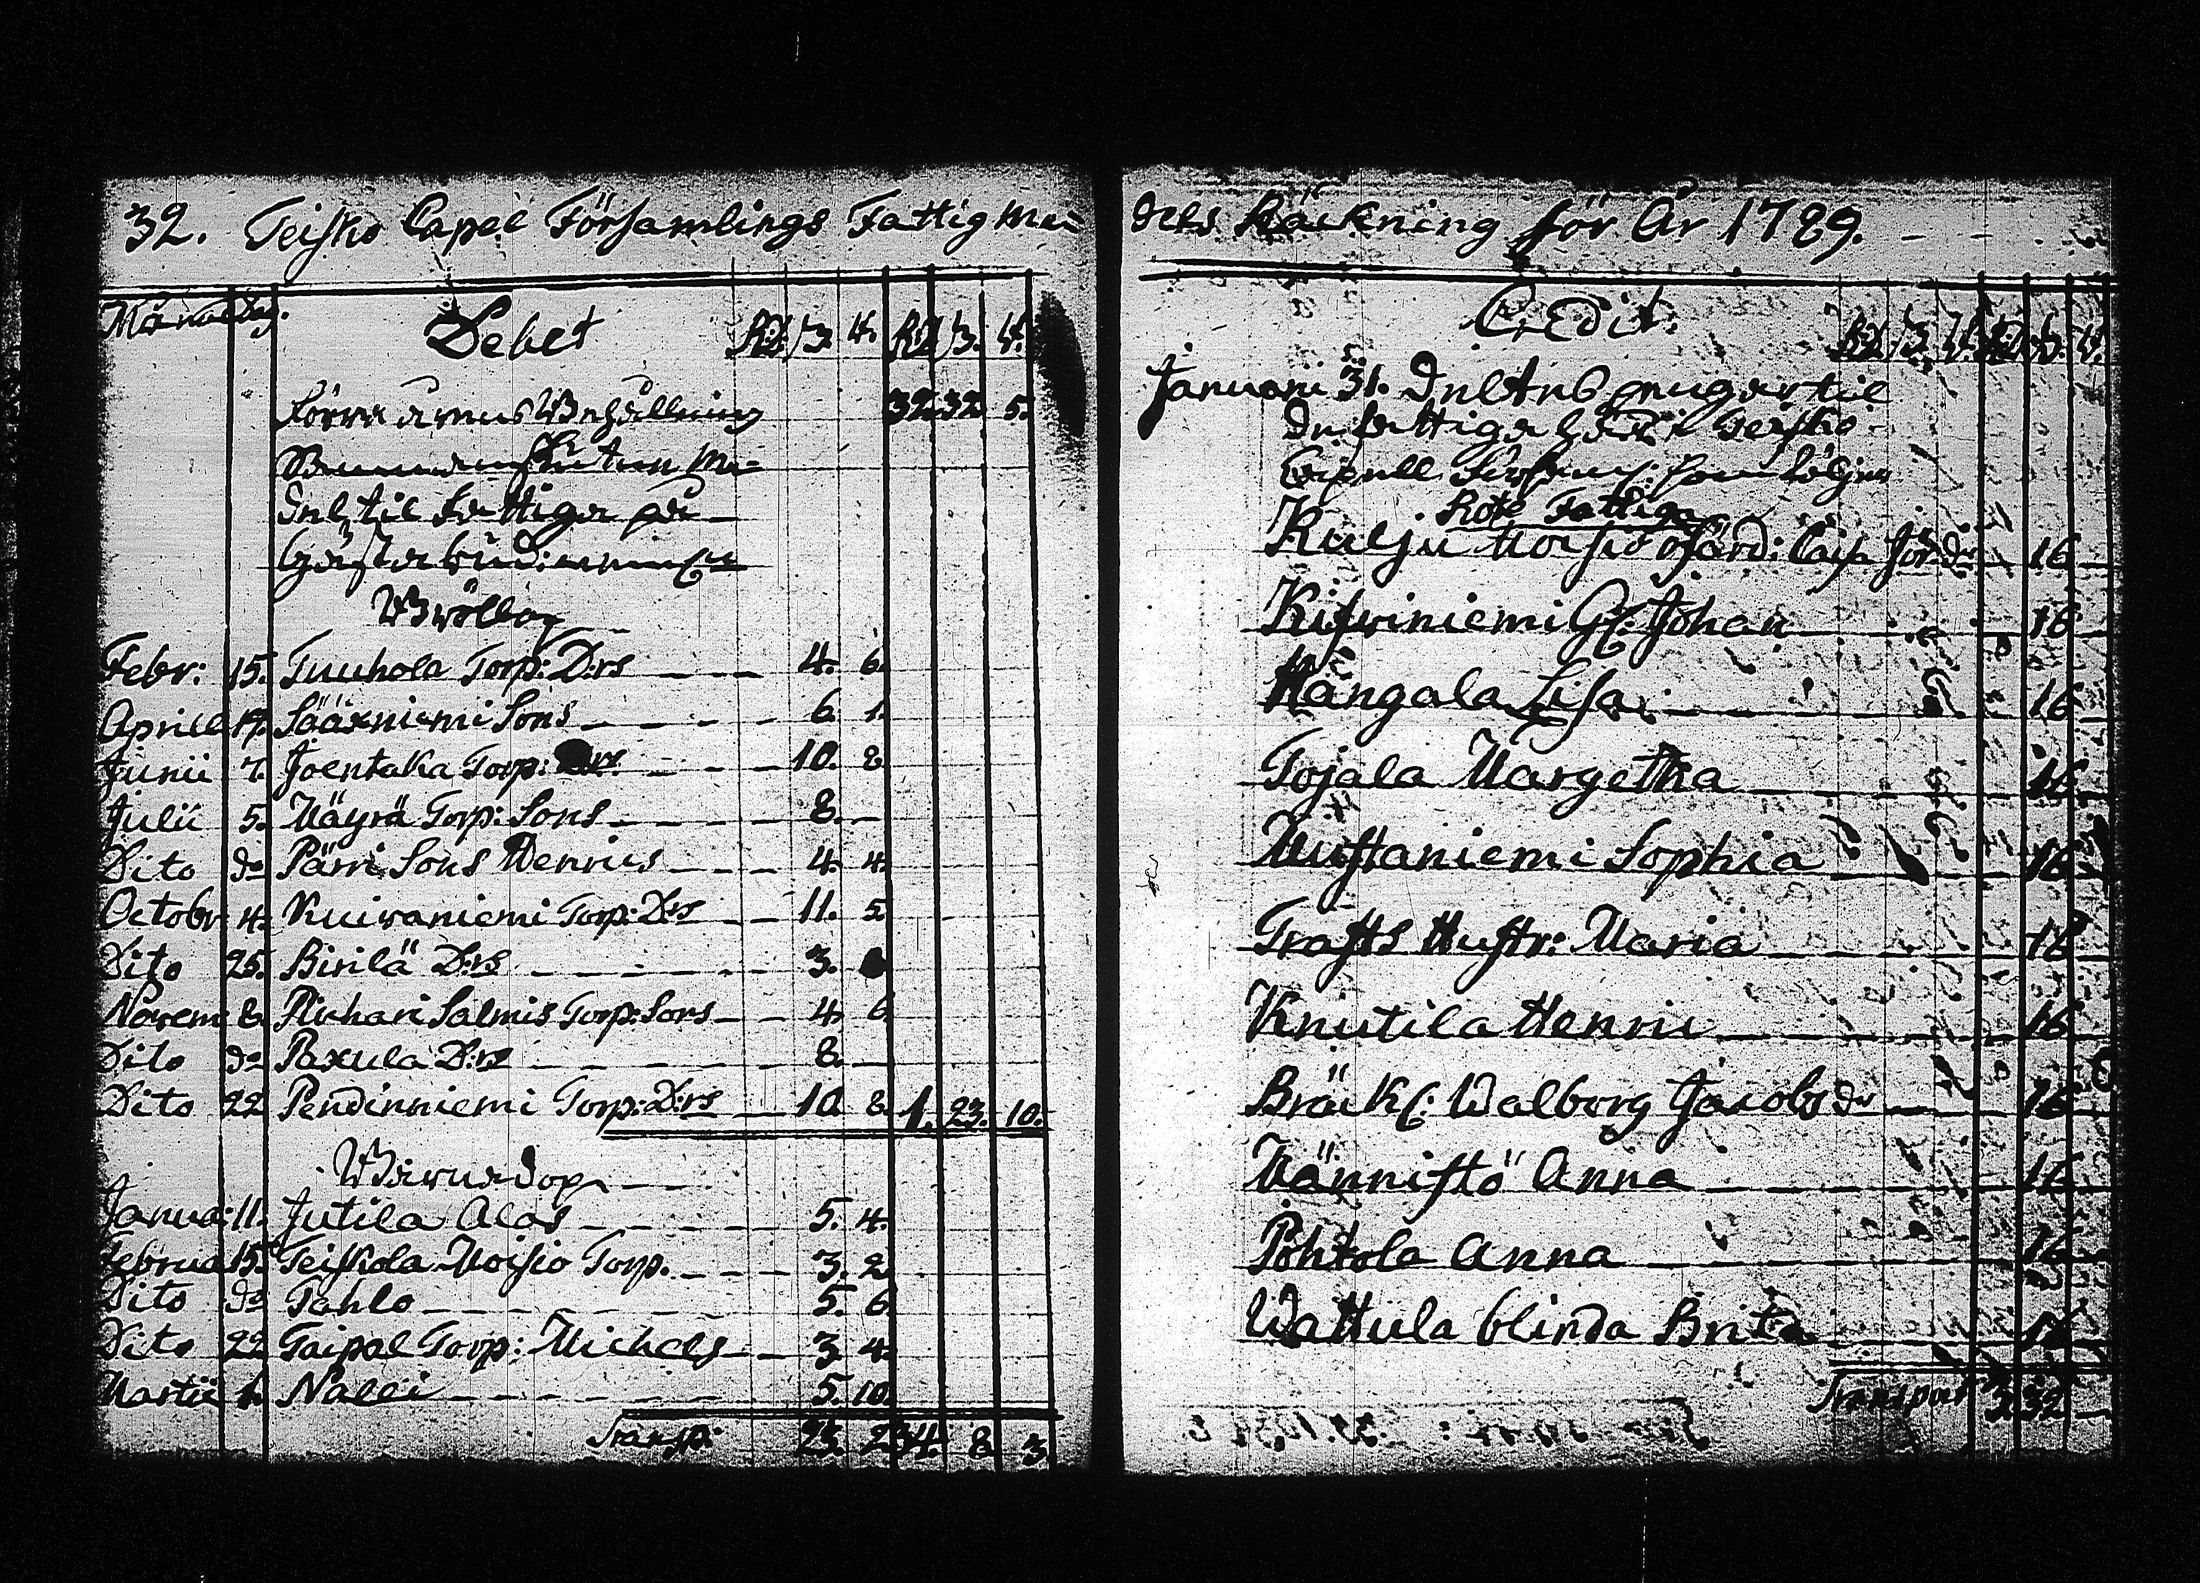 32. Teisko Capel Församlings Fattig Me=
Månad Dag. Debet Rd. ß. r. Rd. ß. r.
Förra årens Behållning 32. 32. 5.
Me=
del, til Fattiga på
Gästabud
Bröllop
Febr: 15. Tuuhola Torp: D:rs 4. 6.
Aprill 19. Sääxniemi Sons 6. 1.
Junii 7. Joentaka Torp: D:rs 10. 8.
Julii 5. Mäyrä Torp: Sons 8. —
Dito do Pärri Sons Henrics 4. 4.
Octobr: 4. Kuivaniemi Torp: D:rs 11. 5.
Dito 25. Birilä D:rs 3.
Novem: 8. Richari Salmis Torp: Sons 4. 6.
Dito do Paxula D:rs 8. —
Dito 22 Pendinniemi Torp: D:rs 10. 8. 1. 23. 10.
Barnsdop
Janua: 11. Jutila Alas 5. 4.
Februa: 15. Teiskola Moisio Torp. 3. 2.
Dito do Tahlo 5. 6.
Dito 22 Taipal Torp: Michels 3. 4.
Martii 1. Nalli 5. 10.
Transp: 23. 2. 34. 8. 3.
dels Räckning för År 1789.
Credit. Rd. ß. r. Rd. ß. r.
Januarii 31. Deltes pengar til
De fattiga här i Teisko
Capell som följer
Rote Fattiga
Kulju Moisio Cajs. Jör. dr 16
Kisviniemi Gl. Johan 16
Hangala Lisa 16
Tojala Margetha 16
Mustaniemi Sophia 16
Trasts Hustr: Maria 16
Knutila Henric 16
Bräck: Walborg Jacobs dr 16
Männistö Anna 16
Pohtola Anna 16
Wattula blinda Brita 16
Transport 3. 32. —